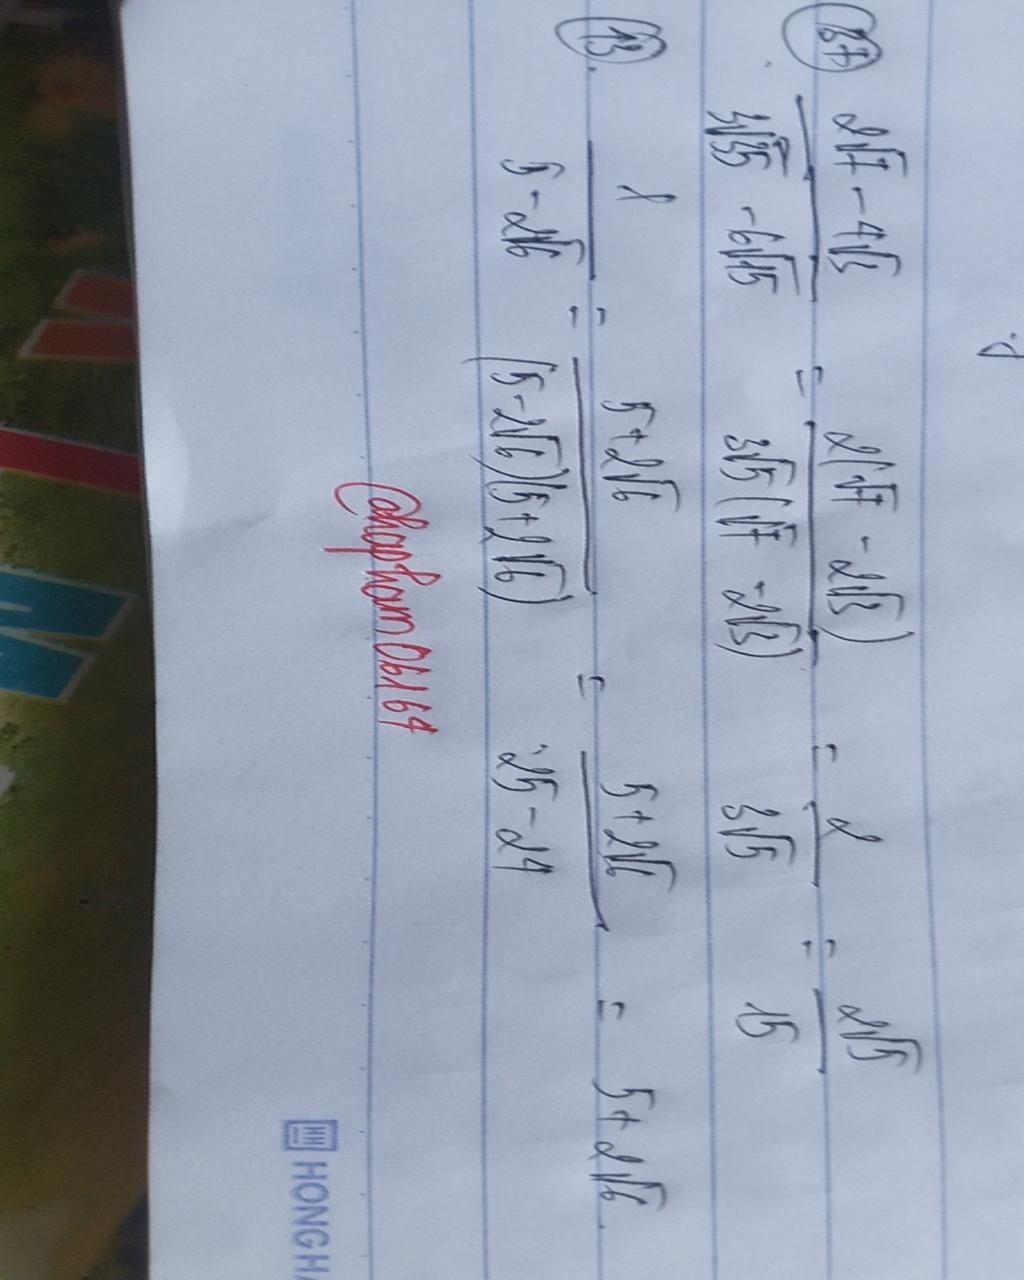 87 (2√7 - 4√3)/(3√35 - 6√15) = 2(√7 - 2√3)/(3√5(√7 - 2√3)) = 2/(3√5) = 2√5/15
13. 1/(5 - 2√6) = (5 + 2√6)/((5 - 2√6)(5 + 2√6)) = (5 + 2√6)/(25 - 24) = 5 + 2√6.
@hapham06164
HONGHA